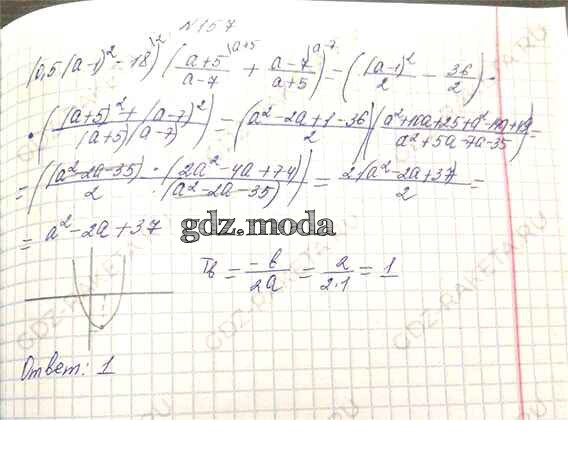 N 157
(0,5(a-1)² - 18)\² (a+5/a-7 \a+5 + a-7/a+5 \a-7) = ((a-1)²/2 - 36/2) ·
· ((a+5)² + (a-7)²/(a+5)(a-7)) = (a²-2a+1-36/2)(a²+10a+25+a²-14a+49/a²+5a-7a-35) =
= ((a²-2a-35)/2 · (2a²-4a+74)/(a²-2a-35)) = 2(a²-2a+37)/2 =
= a²-2a+37
gdz.moda
Tв = -b/2a = 2/2·1 = 1
Ответ: 1
GDZ-RAKETA.RU